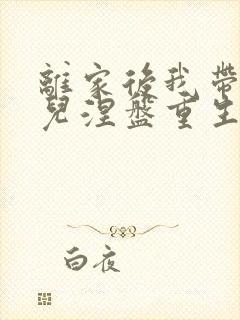 離家後我帶
兒涅盤重生
白夜